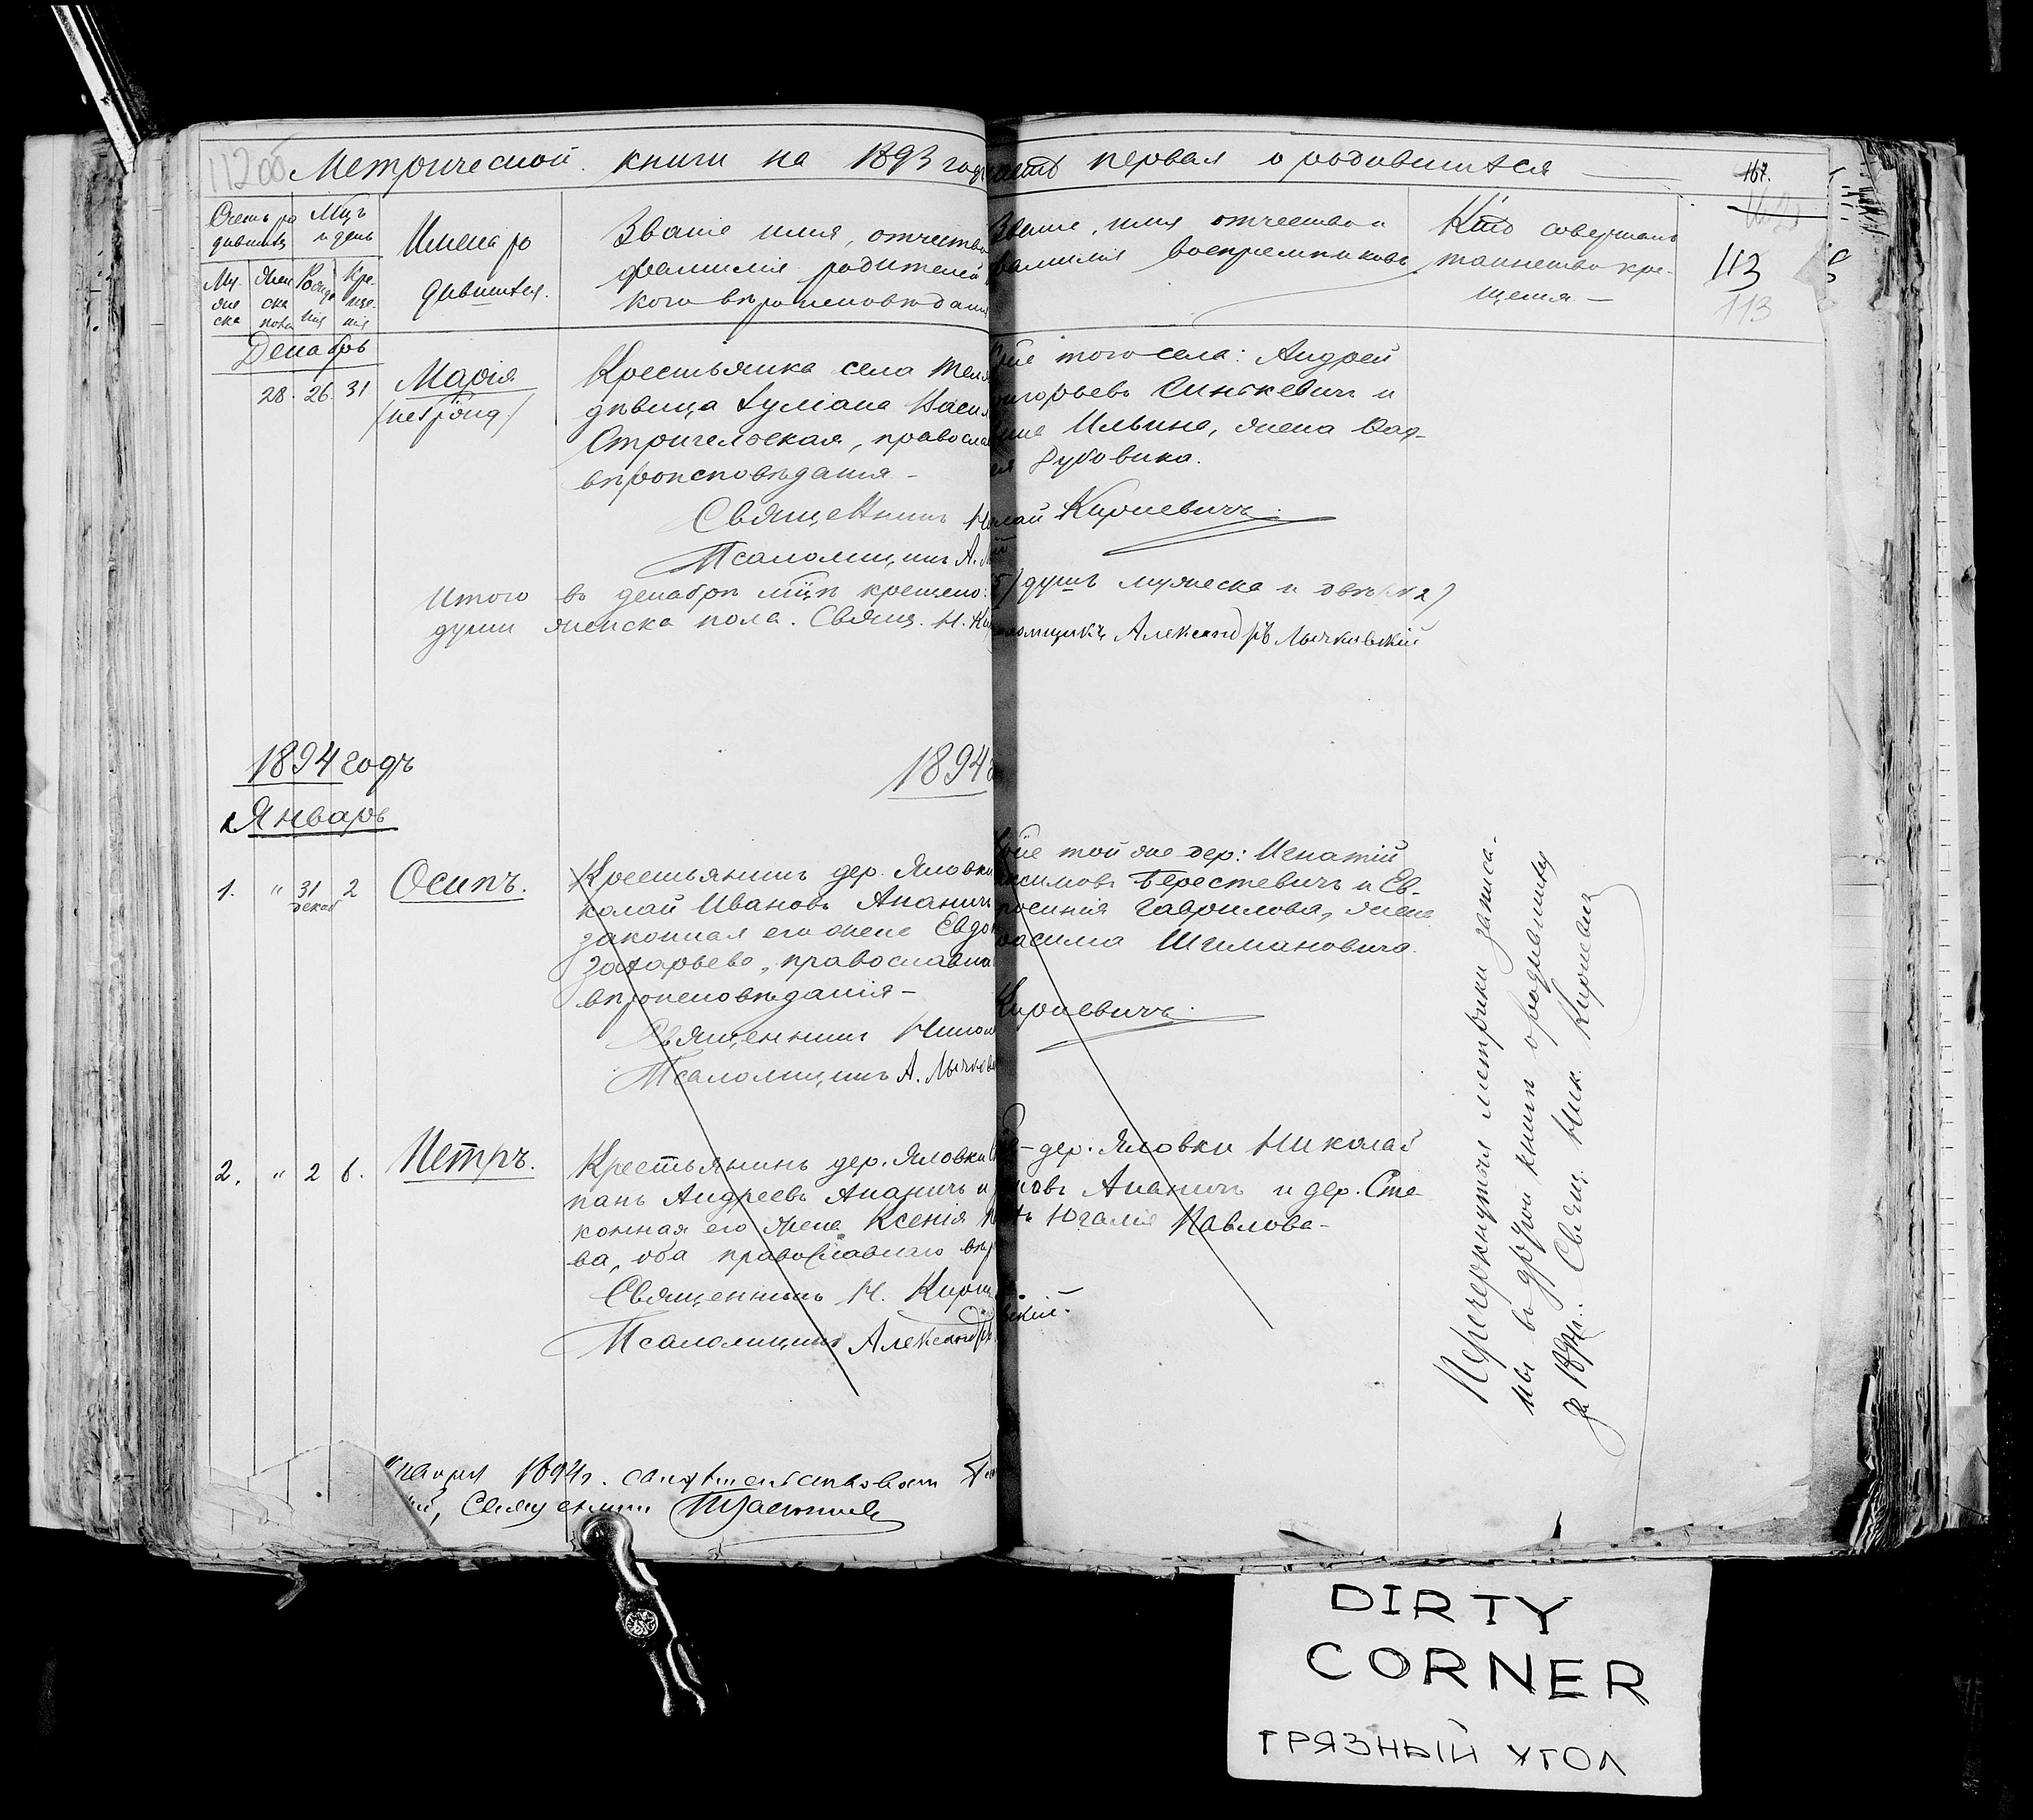 112об Метрической книги на 1893 годъ
часть первая о родившихся
167.
113
113
Счетъ родившихся
Мѣц. и день
Имена родившихся.
Званіе имя, отчество
фамилія родителей
кого вѣроисповѣданія
Званіе, имя отчество и
фамилія воспріемниковъ
Кто совершалъ
таинство кре-
щенія —
Муже
ска
Жен
ска
пола
Рожде
нія
Кре-
ще-
нія
Декабрь
28. 26. 31
Марія
/незаконнорожд./
Крестьянка села
дѣвица Іуліана
Стригельская, православ
вѣроисповѣданія –
того села: Андрей
Григорьевъ Синькевичъ и
Ильина, жена Ѳад-
ея Дубовика.
Священникъ Николай Киркевичъ.
Псаломщикъ А.
Итого въ декабрѣ мцѣ крещено: 5/ душъ мужеска и двѣ /№ 2/
души женска пола. Свящ. Н. Псаломщикъ Александръ Лычковскій
1894 годъ
1894
Январь
1. " 31 2
декаб
Осипъ.
Крестьянинъ дер. Яловки
колай Ивановъ Апанич
законная его жена Евдо
Захарьева, православна
вѣроисповѣданія –
той же дер: Игнатій
Максимовъ Берестевичъ и Ев-
росинія Гаврилова, жена
Герасима Шимановича.
Священникъ Никол
Киркевичъ.
Псаломщикъ А. Лычков
2. " 2 6.
Петръ.
Крестьянинъ дер. Яловки
панъ Андреевъ Апаничъ и
конная его жена Ксенія
ва, оба православнаго вѣр
дер. Яловки Николай
Апаничъ и дер. Сте
Павлова –
Священникъ Н. Кирк
Псаломщикъ Александръ
вскій.
Перечеркнутыя метрики записа-
ны въ другой книгѣ о родившихся
за 1894 г. Свящ. Ник. Киркевичъ
1894 г. свидѣтельствовалъ
Священникъ
DIRTY
CORNER
ГРЯЗНЫЙ УГОЛ